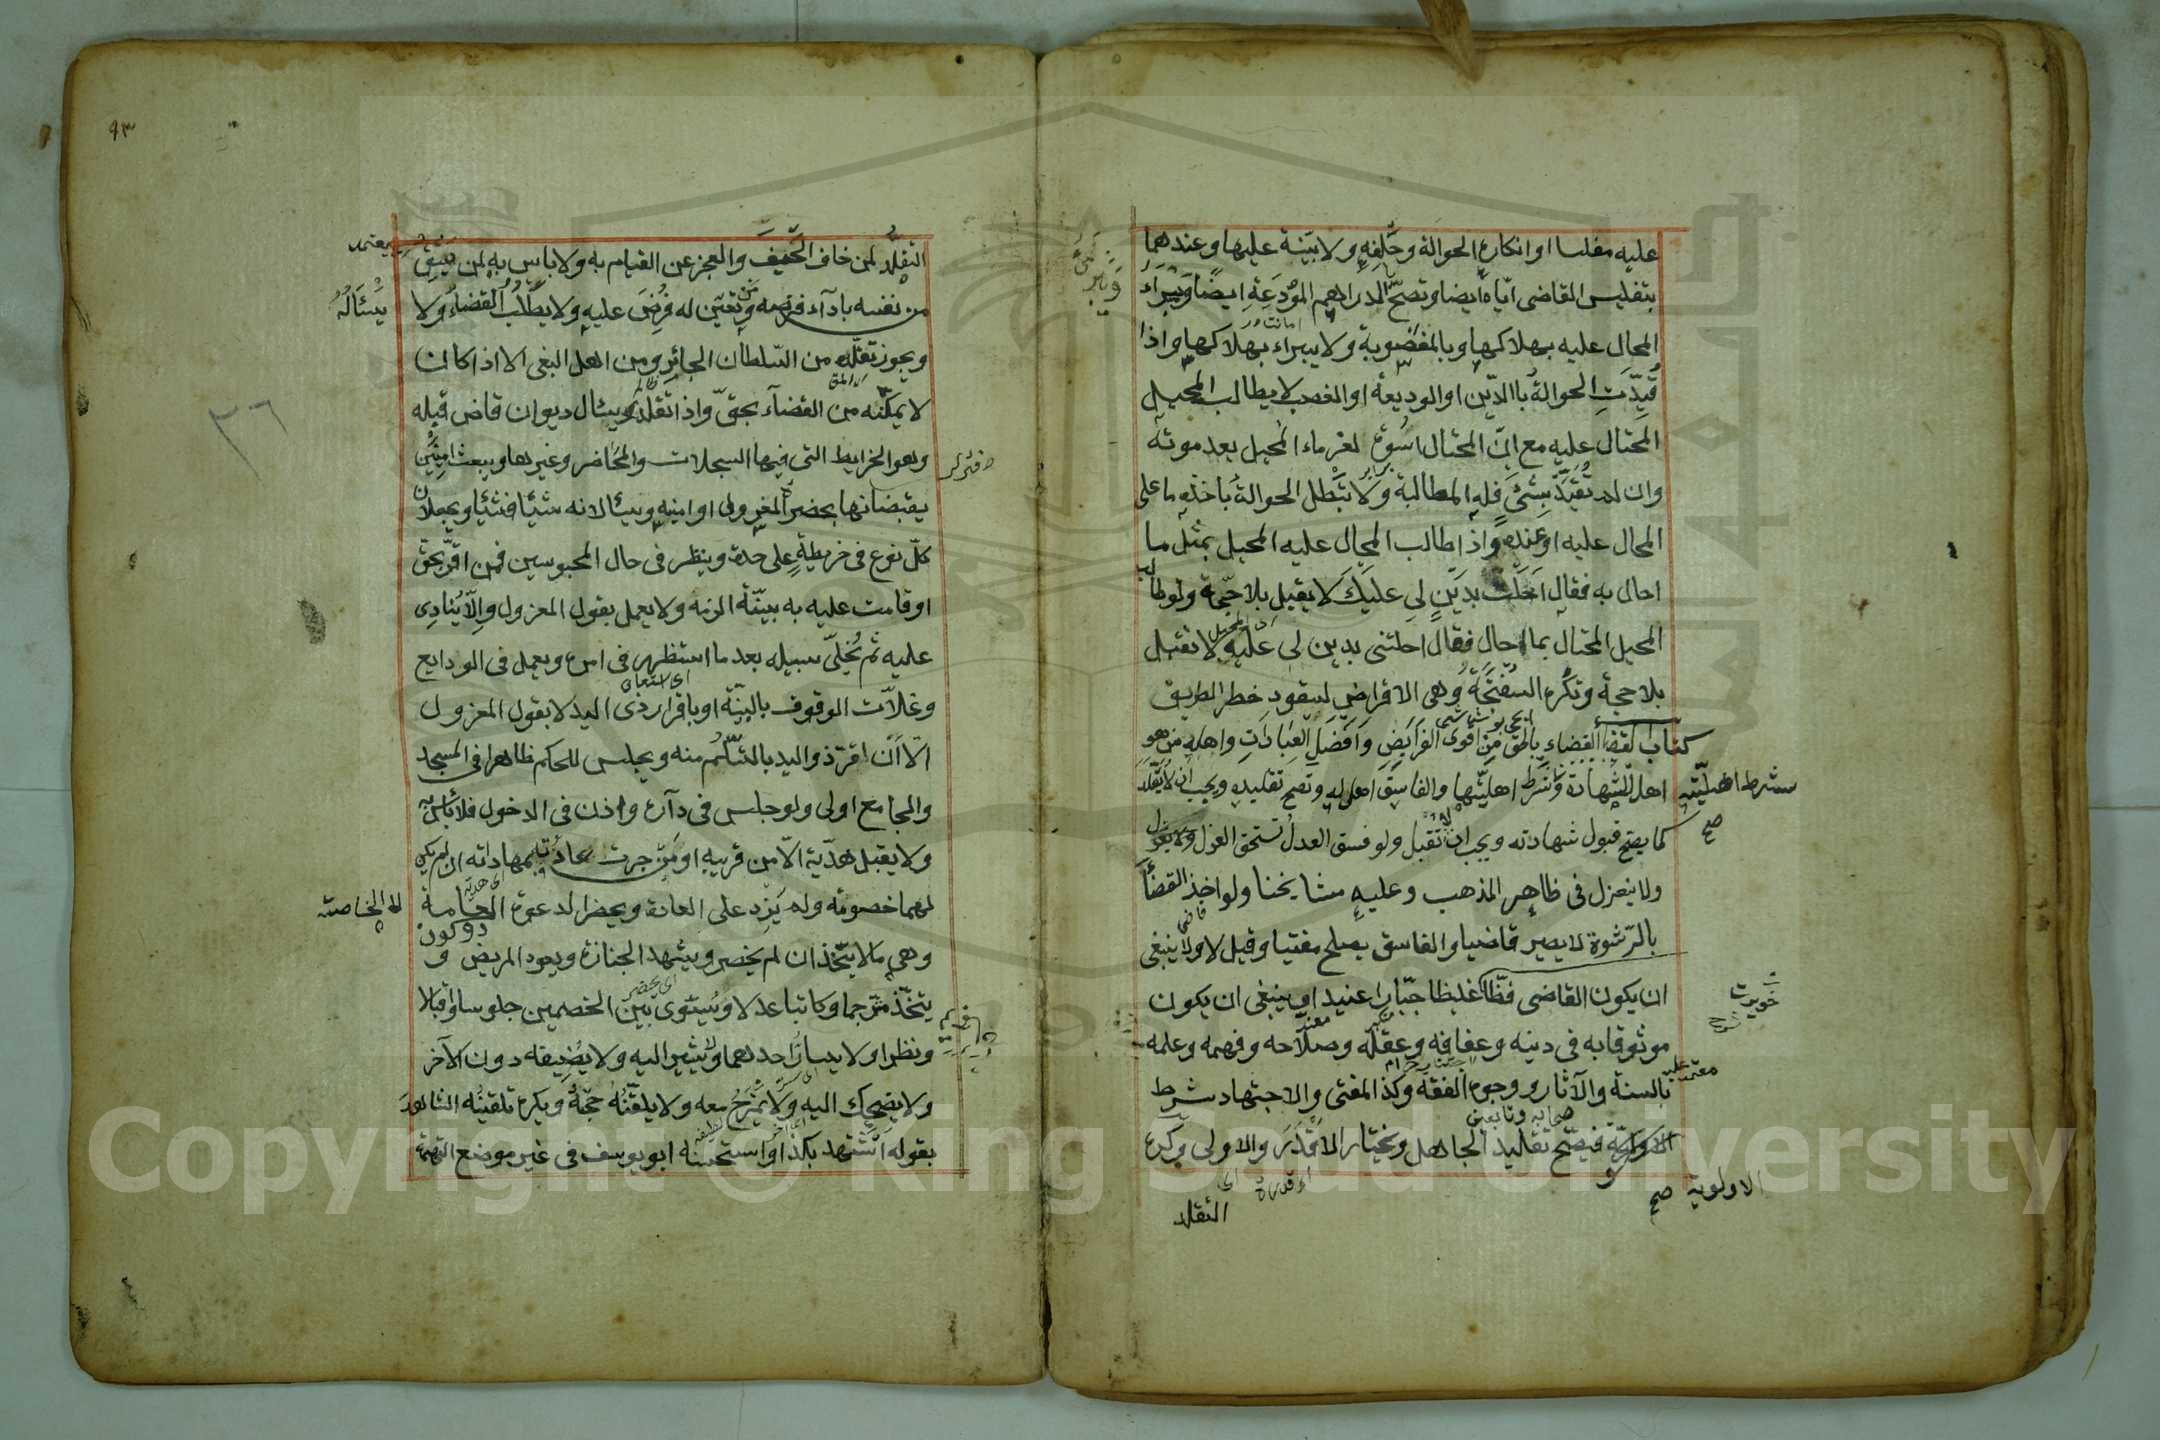 عليه مفلسا او انكاره الحوالة وحلفه ولا بينة عليها وعندهما
بتفليس القاضى اياه ايضا وتصح بالدراهم المودعة ايضا ويبراء
المحال عليه بهلاكها وبالمغصوبة ولا يبراء بهلاكها واذا
قيدت الحوالة باالدين او الوديعة او الغصب لا يطالب المحيل
المحتال عليه مع ان المحتال اسوة لغرماء المحيل بعد موته
وان لم تقيد بشئ فله المطالبة ولا تبطل الحوالة باخذه ما على
المحال عليه او عنده واذا طالب المحال عليه المحيل بمثل ما
احال به فقال احلت بدين لى عليك لا يقبل بلا حجة ولو طالب
المحيل المحتال بما احال فقال احلتنى بدين لى عليه لا تقبل
بلا حجة وتكره السفتجة وهى الاقراض لسقود خطر الطريق
كتاب القضاء القضاء بالحق من اقوى الفرايض وافضل العبادات واهله من هو
اهل للشهادة وشرط اهليتها والفاسق اهل له وتصح تقليده ويجب ان لا تقلد
شرط اهليته
صح
كما يصح قبول شهادته ويجب ان لا تقبل ولو فسق العدل تستحق العزل ولا يعزل
ولا ينعزل فى ظاهر المذهب وعليه مشايخنا ولو اخذ القضاء
بالرشوة لا يصير قاضيا والفاسق يصلح مفتيا وقيل لا ولا ينبغى
ان يكون القاضى فظا غليظا جبارا عنيدا وينبغى ان يكون
موثوقا به فى دينه وعفافه وعقله وصلاحه وفهمه وعلمه
بالسنة والآثار ووجوه الفقه وكذا المفتى والاجتهاد شرط
الاولوية فيصح تقليد الجاهل ويختار الاقدر والاولى وكره
الاولوية صح
التقلد
٩٣
التقلد لمن خاف الحيف والعجز عن القيام به ولا باس به لمن يثق
من نفسه باداء فرضه ومن تعين له فرض عليه ولا يطلب القضاء ولا
يسئاله
ويجوز تقلده من السلطان الجائر ومن اهل البغى الا اذا كان
لا يمكنه من القضآء بحق واذا تقلد يسئال ديوان قاض قبله
وهو الخرايط التى فيها السجلات والمحاضر وغيرها ويبعث امينين
يقبضانها بحضر المعزول او امينه ويسئالانه شيئا فشيئا ويجعلان
كل نوع فى خريطة على حدة وينظر فى حال المحبوسين فمن اقر بحق
او قامت عليه به بينة الزمه ولا يعمل بقول المعزول والا ينادى
عليه ثم يخلى سبيله بعد ما استظهر فى امره ويعمل فى الودايع
وغلات الوقوف بالبينة او باقرار ذى اليد لا بقول المعزول
الا ان اقر ذو اليد بالتسلم منه ويجلس للحكم ظاهرا فى المسجد
والجامع اولى ولو جلس فى دآره واذن فى الدخول فلا باس به
ولا يقبل هدية الا من قريبه او من جرت عادته بمهاداته ان لم يكن
لهما خصومة ولم يزد على العادة ويحضر الدعوة العامة
لا الخاصة
وهى ما لا يتخذ ان لم يحضر ويشهد الجنازة ويعود المريض و
يتخذ مترجما وكاتبا عدلا ويسوى بين الخصمين جلوسا واقبالا
ونظرا ولا يسار احدهما ولا يشير اليه ولا يضيفه دون الآخر
ولا يضحك اليه ولا يمزح معه ولا يلقنه حجة ويكره تلقينه الشاهد
بقوله اتشهد بكذا واستحسنه ابو يوسف فى غير موضع التهمة
Copyright © King Saud University